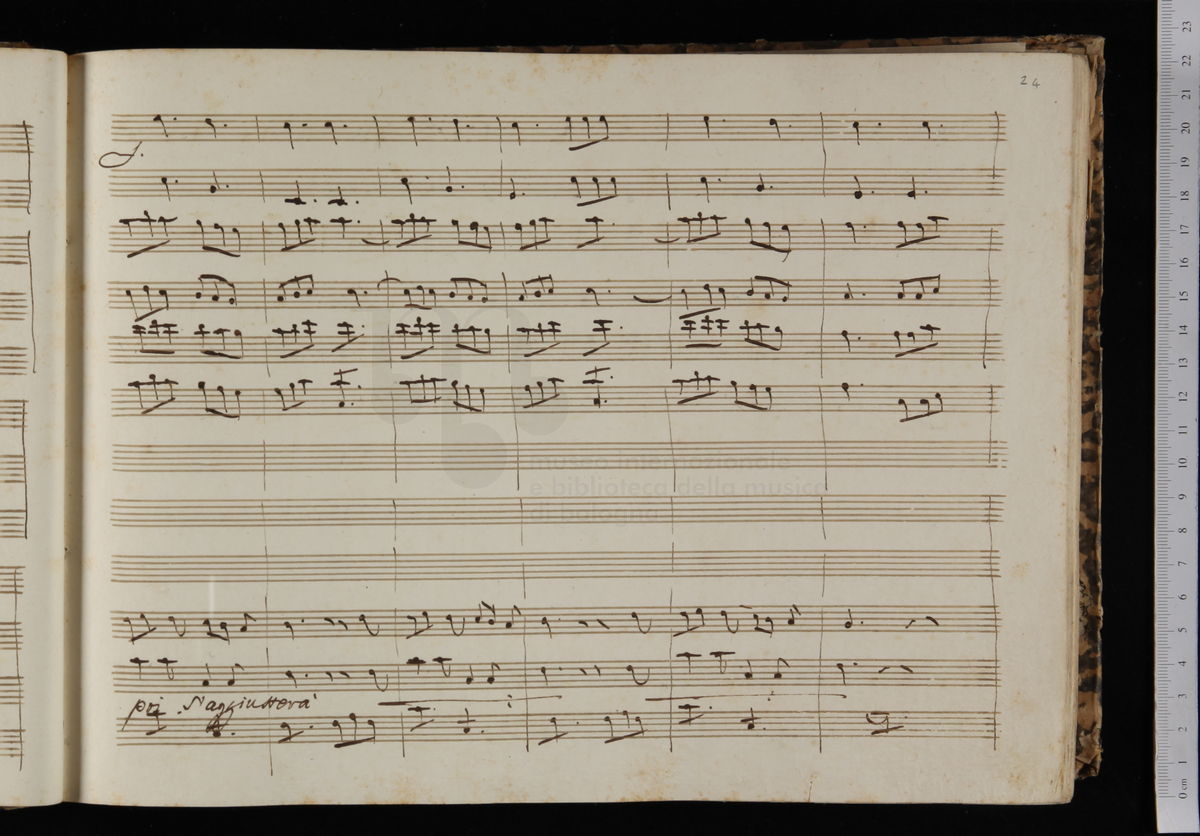 24
museo internazionale
e biblioteca della musica
di bologna
S'aggiusterà
23
22
21
20
19
18
17
16
15
14
13
12
11
10
9
8
7
6
5
4
3
2
1
0 cm